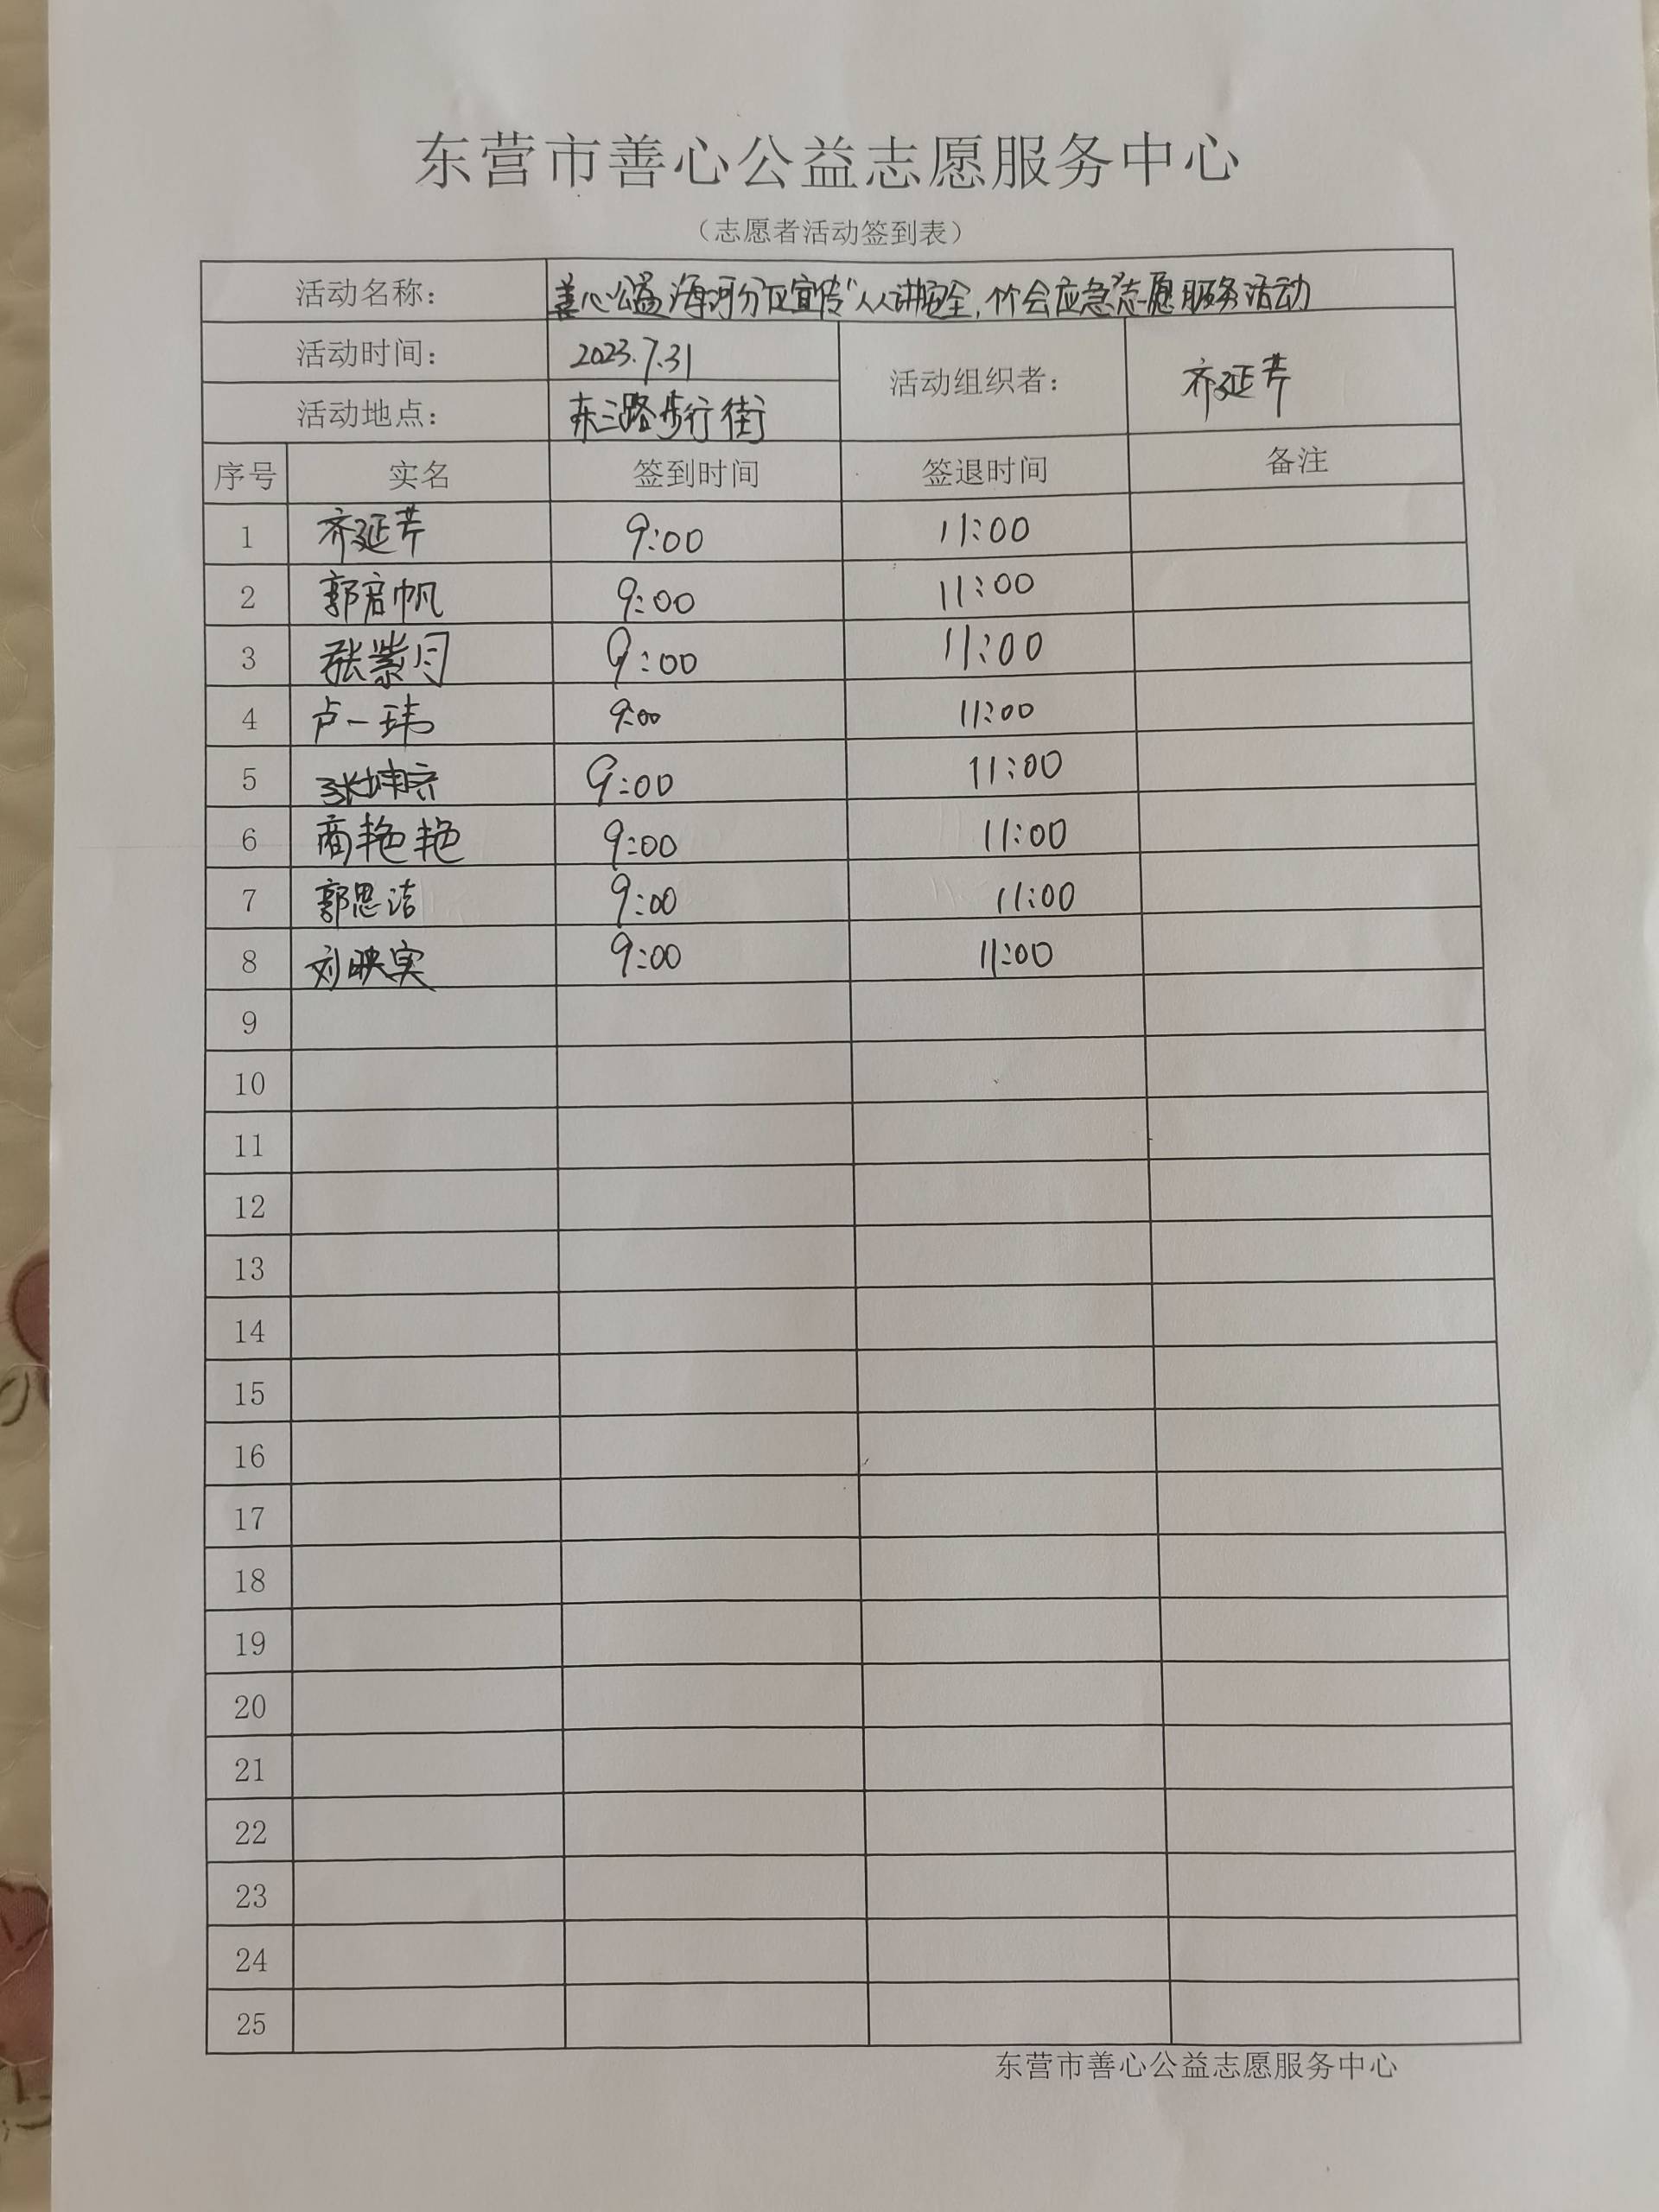 东营市善心公益志愿服务中心
（志愿者活动签到表）
活动名称： 善心公益海河分区宣传"人人讲安全，个个会应急"志愿服务活动
活动时间： 2023.7.31
活动组织者： 齐延芹
活动地点： 东三路步行街
序号 实名 签到时间 签退时间 备注
1 齐延芹 9:00 11:00
2 郭启帆 9:00 11:00
3 张紫月 9:00 11:00
4 卢一玮 9:00 11:00
5 张坤 9:00 11:00
6 商艳艳 9:00 11:00
7 郭思洁 9:00 11:00
8 刘映实 9:00 11:00
9
10
11
12
13
14
15
16
17
18
19
20
21
22
23
24
25
东营市善心公益志愿服务中心